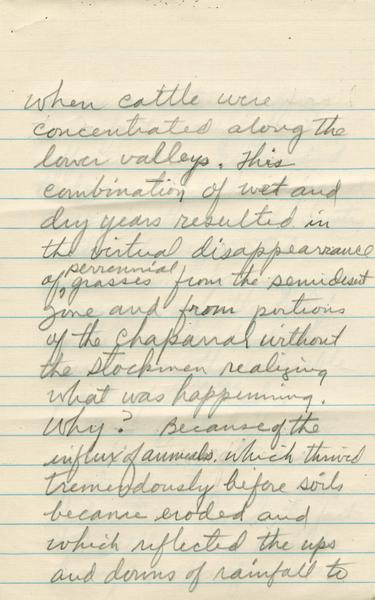 when cattle were
concentrated along the
lower valleys. This
combination of wet and
dry years resulted in
the virtual disappearrance
perrennial
of grasses from the semidesert
zone and from portions
of the chaparral without
the stockmen realizing
what was happenning.
Why? Because of the
influx of annuals, which thrived
tremendously before soils
became eroded and
which reflected the ups
and downs of rainfall to